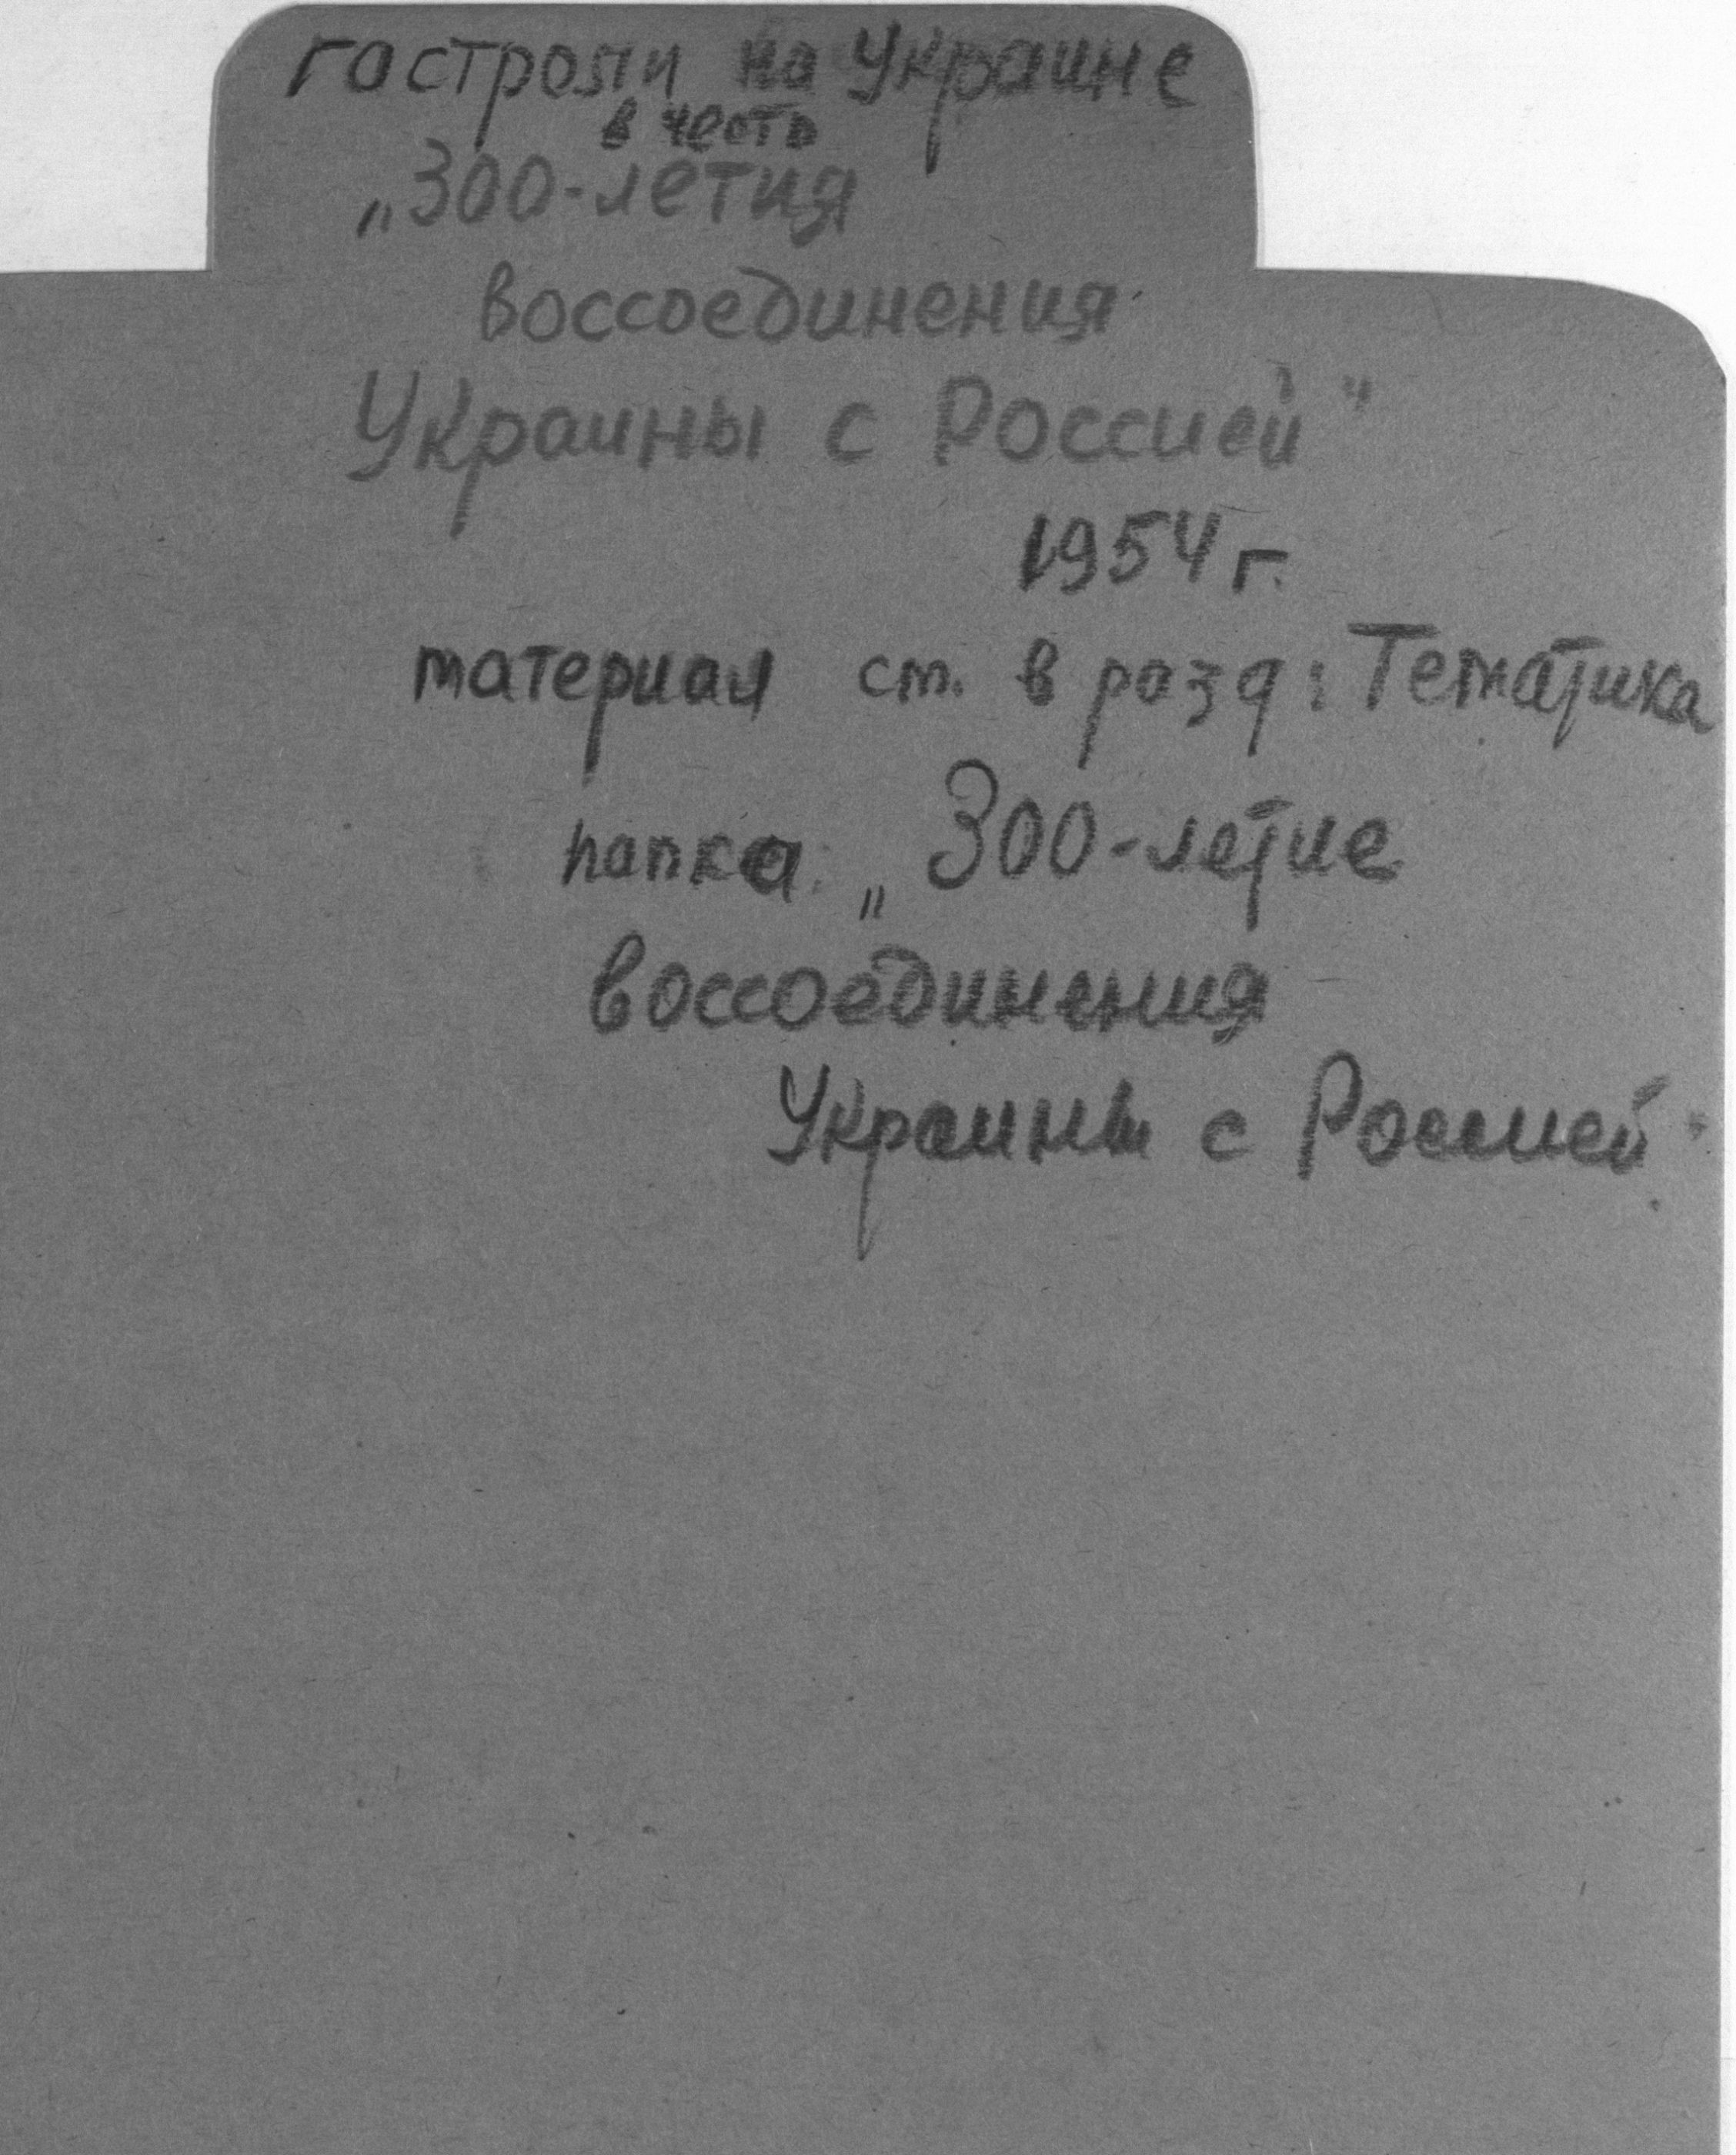 гастроли на Украине
в честь
„300-летия
воссоединения
Украины с Россией"
1954 г.
материал см. в разд: Тематика
папка „300-летие
воссоединения
Украины с Россией"